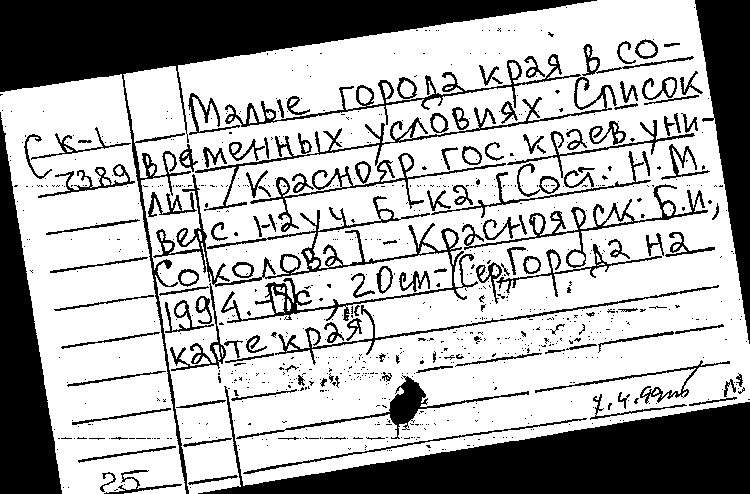 Малые города края в со-
Ск-1
2389
временных условиях: Список
лит. / Краснояр. гос. краев. уни-
верс. науч. б-ка; [Сост.: Н.М.
Соколова]. - Красноярск: Б.и.,
1994. - [8]с.; 20см. - (Сер. Города на
карте края)
25